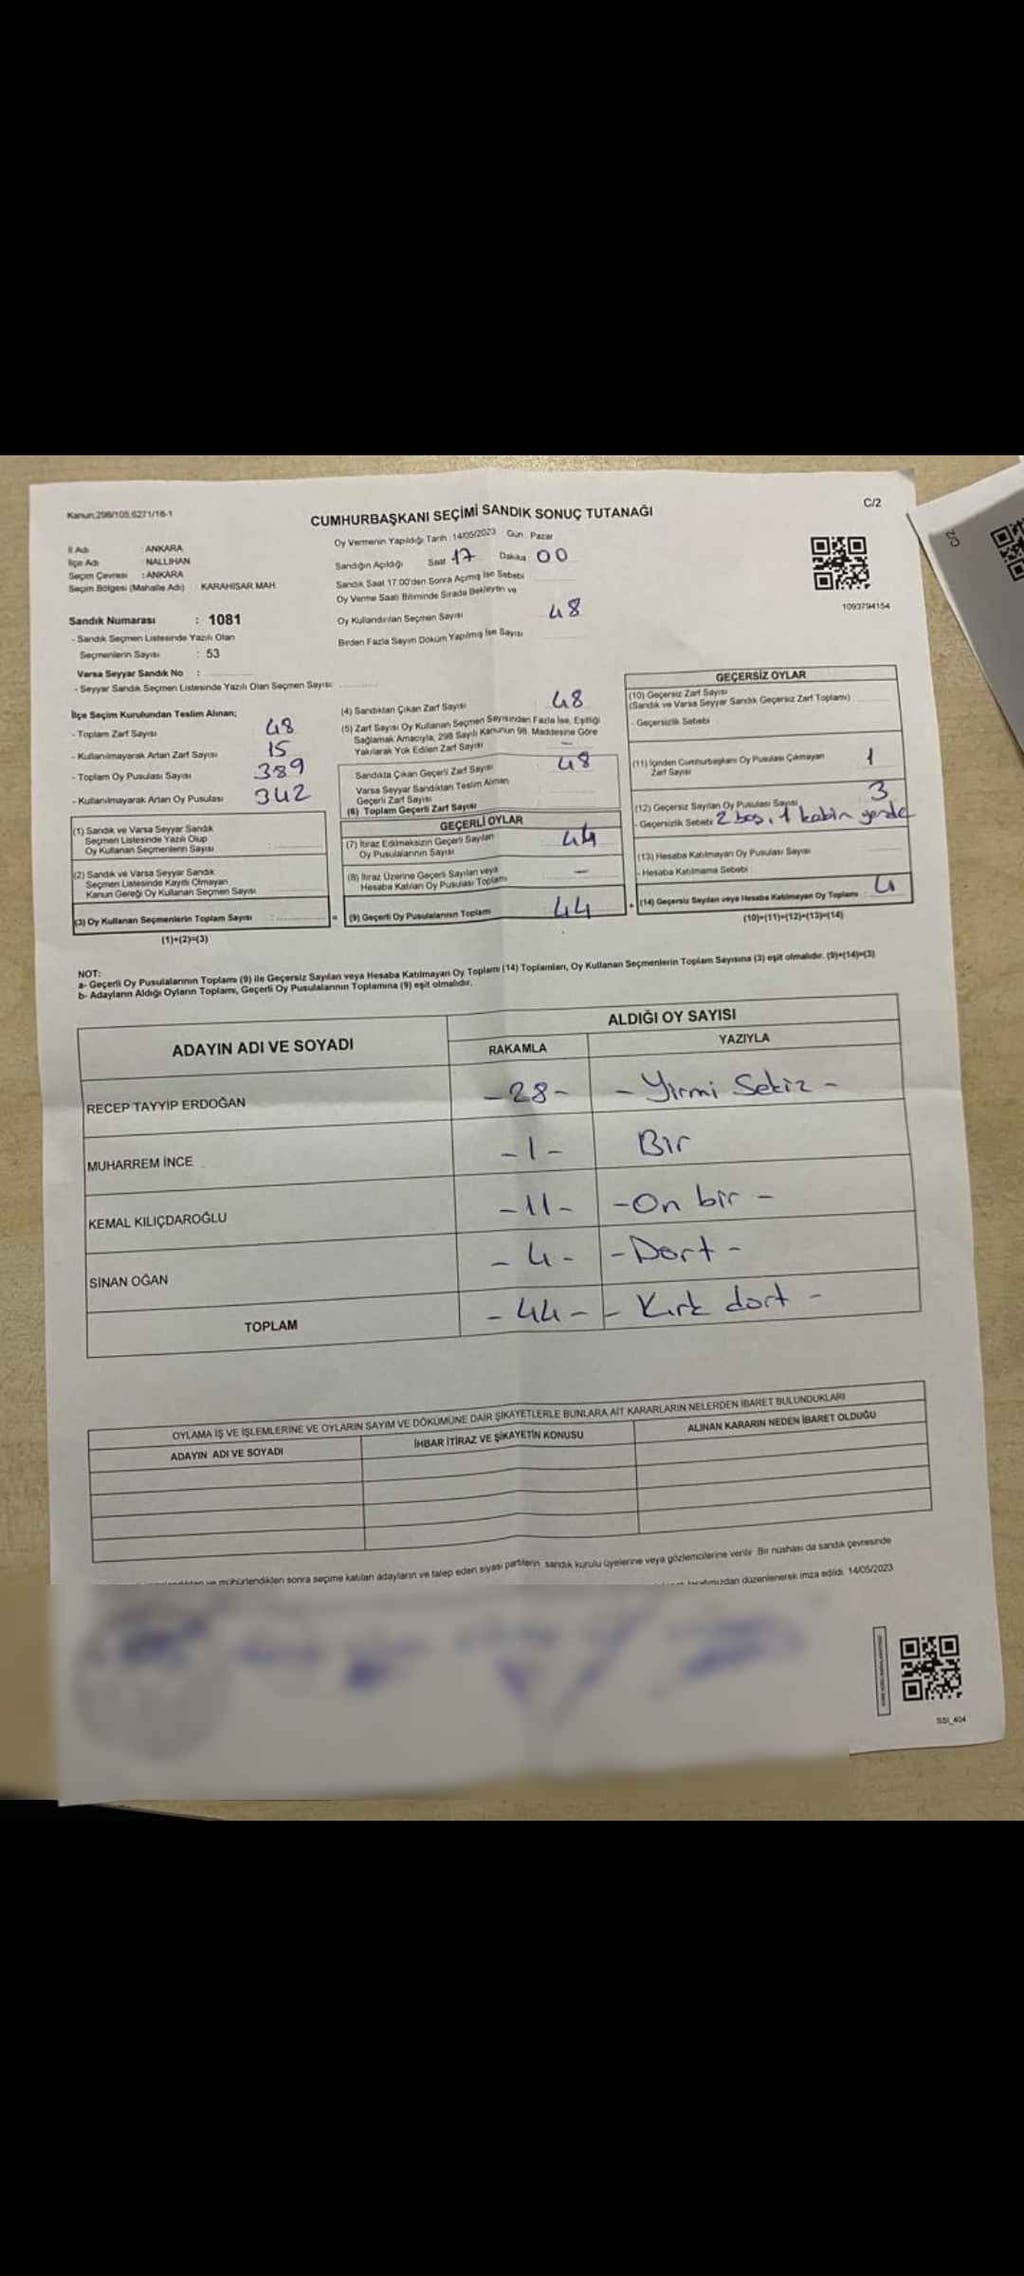 Kanun:298/105,6271/16-1
C/2
CUMHURBAŞKANI SEÇİMİ SANDIK SONUÇ TUTANAĞI
İl Adı : ANKARA
İlçe Adı : NALLIHAN
Seçim Çevresi : ANKARA
Seçim Bölgesi (Mahalle Adı) KARAHİSAR MAH.
Oy Vermenin Yapıldığı Tarih :14/05/2023 Gün : Pazar
Sandığın Açıldığı Saat 17 Dakika : 00
Sandık Saat 17.00'den Sonra Açılmış İse Sebebi
Oy Verme Saati Bitiminde Sırada Bekleyen ve
Oy Kullandırılan Seçmen Sayısı 48
Birden Fazla Sayım Döküm Yapılmış İse Sayısı
1093794154
Sandık Numarası : 1081
- Sandık Seçmen Listesinde Yazılı Olan
Seçmenlerin Sayısı : 53
Varsa Seyyar Sandık No :
- Seyyar Sandık Seçmen Listesinde Yazılı Olan Seçmen Sayısı:
İlçe Seçim Kurulundan Teslim Alınan;
- Toplam Zarf Sayısı 48
- Kullanılmayarak Artan Zarf Sayısı 15
- Toplam Oy Pusulası Sayısı 389
- Kullanılmayarak Artan Oy Pusulası 342
(1) Sandık ve Varsa Seyyar Sandık
Seçmen Listesinde Yazılı Olup
Oy Kullanan Seçmenlerin Sayısı
(2) Sandık ve Varsa Seyyar Sandık
Seçmen Listesinde Kayıtlı Olmayan
Kanun Gereği Oy Kullanan Seçmen Sayısı
(3) Oy Kullanan Seçmenlerin Toplam Sayısı :
(1)+(2)=(3)
(4) Sandıktan Çıkan Zarf Sayısı 48
(5) Zarf Sayısı Oy Kullanan Seçmen Sayısından Fazla İse, Eşitliği
Sağlamak Amacıyla, 298 Sayılı Kanunun 98. Maddesine Göre
Yakılarak Yok Edilen Zarf Sayısı —
Sandıkta Çıkan Geçerli Zarf Sayısı 48
Varsa Seyyar Sandıktan Teslim Alınan
Geçerli Zarf Sayısı
(6) Toplam Geçerli Zarf Sayısı
GEÇERLİ OYLAR
(7) İtiraz Edilmeksizin Geçerli Sayılan
Oy Pusulalarının Sayısı 44
(8) İtiraz Üzerine Geçerli Sayılan veya
Hesaba Katılan Oy Pusulası Toplamı —
= (9) Geçerli Oy Pusulalarının Toplamı 44
GEÇERSİZ OYLAR
(10) Geçersiz Zarf Sayısı
(Sandık ve Varsa Seyyar Sandık Geçersiz Zarf Toplamı)
- Geçersizlik Sebebi
(11) İçinden Cumhurbaşkanı Oy Pusulası Çıkmayan
Zarf Sayısı 1
(12) Geçersiz Sayılan Oy Pusulası Sayısı 3
- Geçersizlik Sebebi 2 boş, 1 kabin yerde
(13) Hesaba Katılmayan Oy Pusulası Sayısı
- Hesaba Katılmama Sebebi
+ (14) Geçersiz Sayılan veya Hesaba Katılmayan Oy Toplamı : 4
(10)+(11)+(12)+(13)=(14)
NOT:
a- Geçerli Oy Pusulalarının Toplamı (9) ile Geçersiz Sayılan veya Hesaba Katılmayan Oy Toplamı (14) Toplamları, Oy Kullanan Seçmenlerin Toplam Sayısına (3) eşit olmalıdır. (9)+(14)=(3)
b- Adayların Aldığı Oyların Toplamı, Geçerli Oy Pusulalarının Toplamına (9) eşit olmalıdır.
ADAYIN ADI VE SOYADI
ALDIĞI OY SAYISI
RAKAMLA YAZIYLA
RECEP TAYYİP ERDOĞAN -28- - Yirmi Sekiz -
MUHARREM İNCE -1- Bir
KEMAL KILIÇDAROĞLU -11- -On bir -
SİNAN OĞAN - 4 - -Dort -
TOPLAM - 44 - - Kırk dort -
OYLAMA İŞ VE İŞLEMLERİNE VE OYLARIN SAYIM VE DÖKÜMÜNE DAİR ŞİKAYETLERLE BUNLARA AİT KARARLARIN NELERDEN İBARET BULUNDUKLARI
ADAYIN ADI VE SOYADI İHBAR İTİRAZ VE ŞİKAYETİN KONUSU ALINAN KARARIN NEDEN İBARET OLDUĞU
ve mühürlendikten sonra seçime katılan adayların ve talep eden siyasi partilerin sandık kurulu üyelerine veya gözlemcilerine verilir. Bir nüshası da sandık çevresinde
tarafımızdan düzenlenerek imza edildi. 14/05/2023
SSI_404